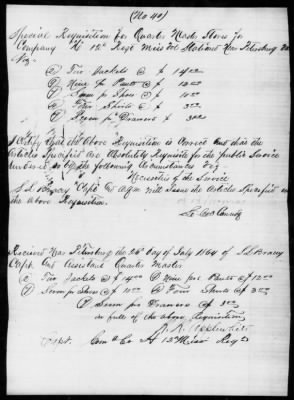 (No 40)
Special Requisition For Quarter Master Stores for
Company K 12th Regt Miss Vol Stationed Near Petersburg Va
Viz
(2) Two Jackets @ $ 14 00
(9) Nine pr Pants @ $ 12 00
(7) Seven pr Shoes @ $ 10 00
(4) Four Shirts @ $ 3 00
(7) Seven pr Drawers @ $ 3 00
I Certify that the Above Requisition is Correct and that the
Articles Specified are Absolutely Requisite for the public Service
rendered so by the following Circumstances Viz
Necessities of the Service
S. L. Bracy Capt & Aqm will Issue the Articles Specified in
the Above Requisition
Lt Col Comdg
Received Near Petersburg the 26th day of July 1864 of S L Bracy
Capt and Assistant Quarter Master
(2) Two Jackets @ $ 14 00 (9) Nine pr Pants @ $ 12 00
(7) Seven pr Shoes @ $ 10 00 (4) Four Shirts @ $ 3 00
(7) Seven pr Drawers @ $ 3 00
in full of the above Requisition
Com'd'g Co 12 Miss Regt